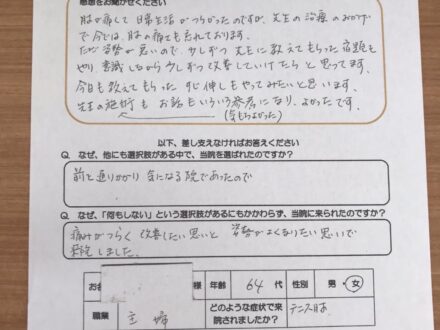 感想をお聞かせください
肘が痛して日常生活がつらかったのですが、先生の治療のおかげ
で今では、肘の痛も忘れております。
ただ姿勢が悪いので少しずつ先生に教えてもらった宿題も
やり、意識しながら少しずつ改善していけたらと思ってます。
今日も教えてもらった 伸しもやってみたいと思います。
先生の施術もお話もいろいろ参考になり、よかったです。
(気もちよかった)
以下、差し支えなければお答えください
Q. なぜ、他にも選択肢がある中で、当院を選ばれたのですか?
前を通りかかり 気になる院であったので
Q. なぜ、「何もしない」という選択肢があるにもかかわらず、当院に来られたのですか?
痛みがつらく 改善したい思いと 姿勢がよくなりたい思いで
来院しました。
お名 様 年齢 64 代 性別 男・女
職業 主婦 どのような症状で来院されましたか? テニス肘